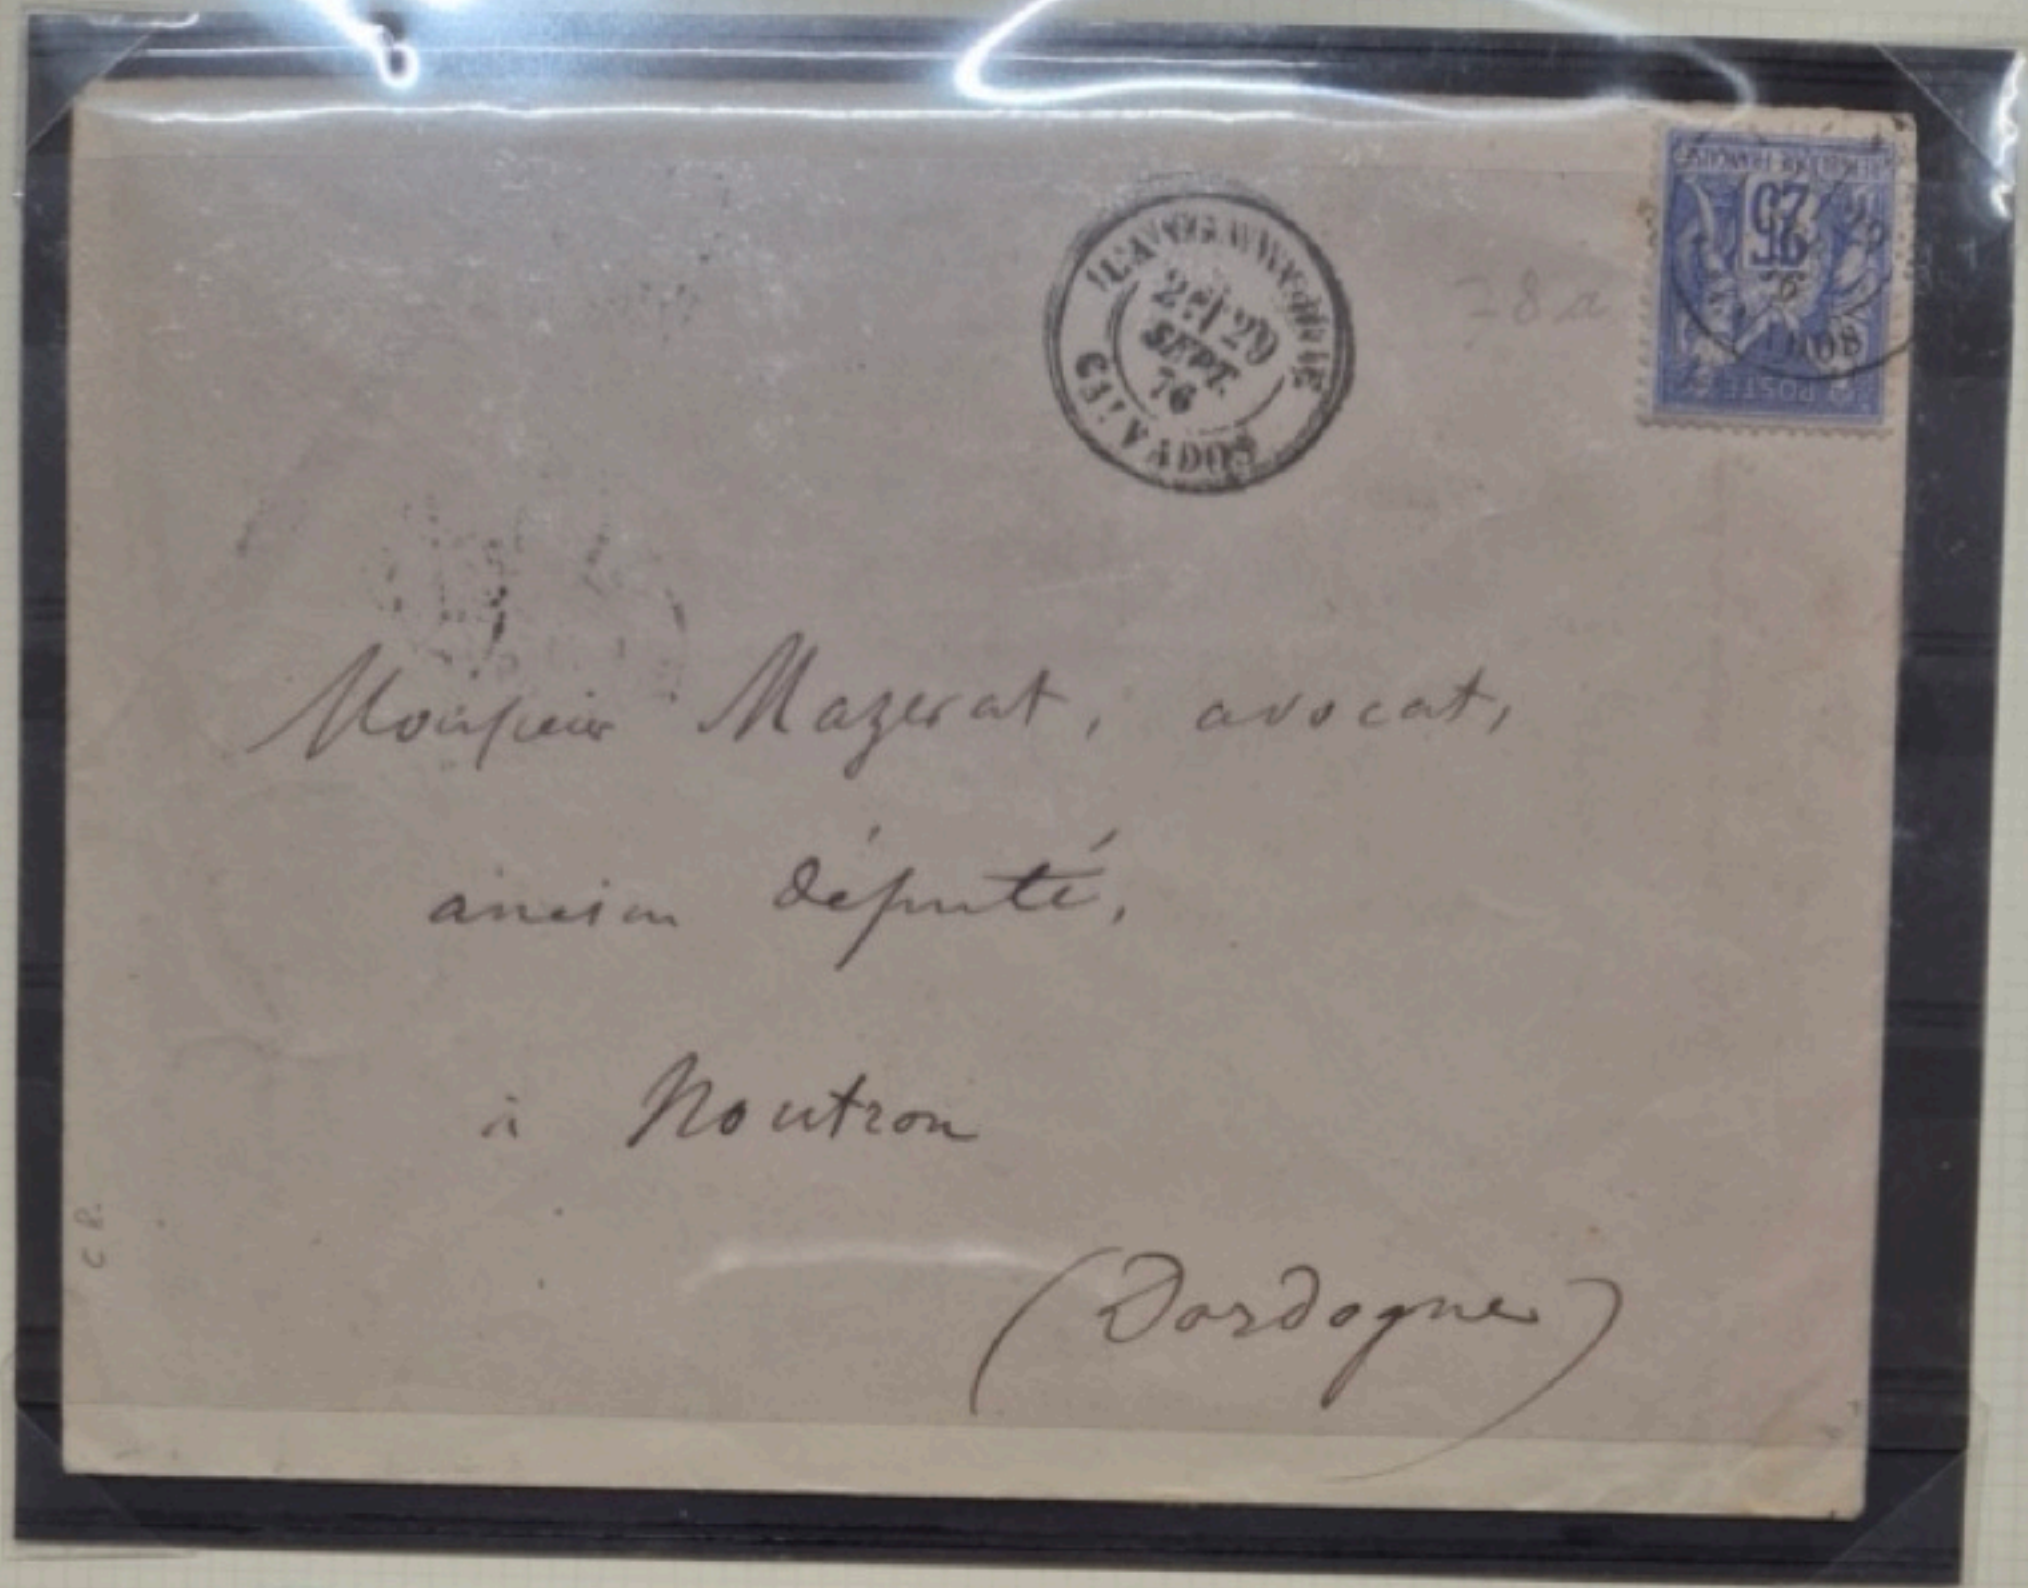 2E 29
SEPT.
76
CALVADOS
78a
25
REPUBLIQUE FRANÇAISE
POSTES
Monsieur Mazerat, avocat,
ancien député,
à Nontron
(Dordogne)
C R.